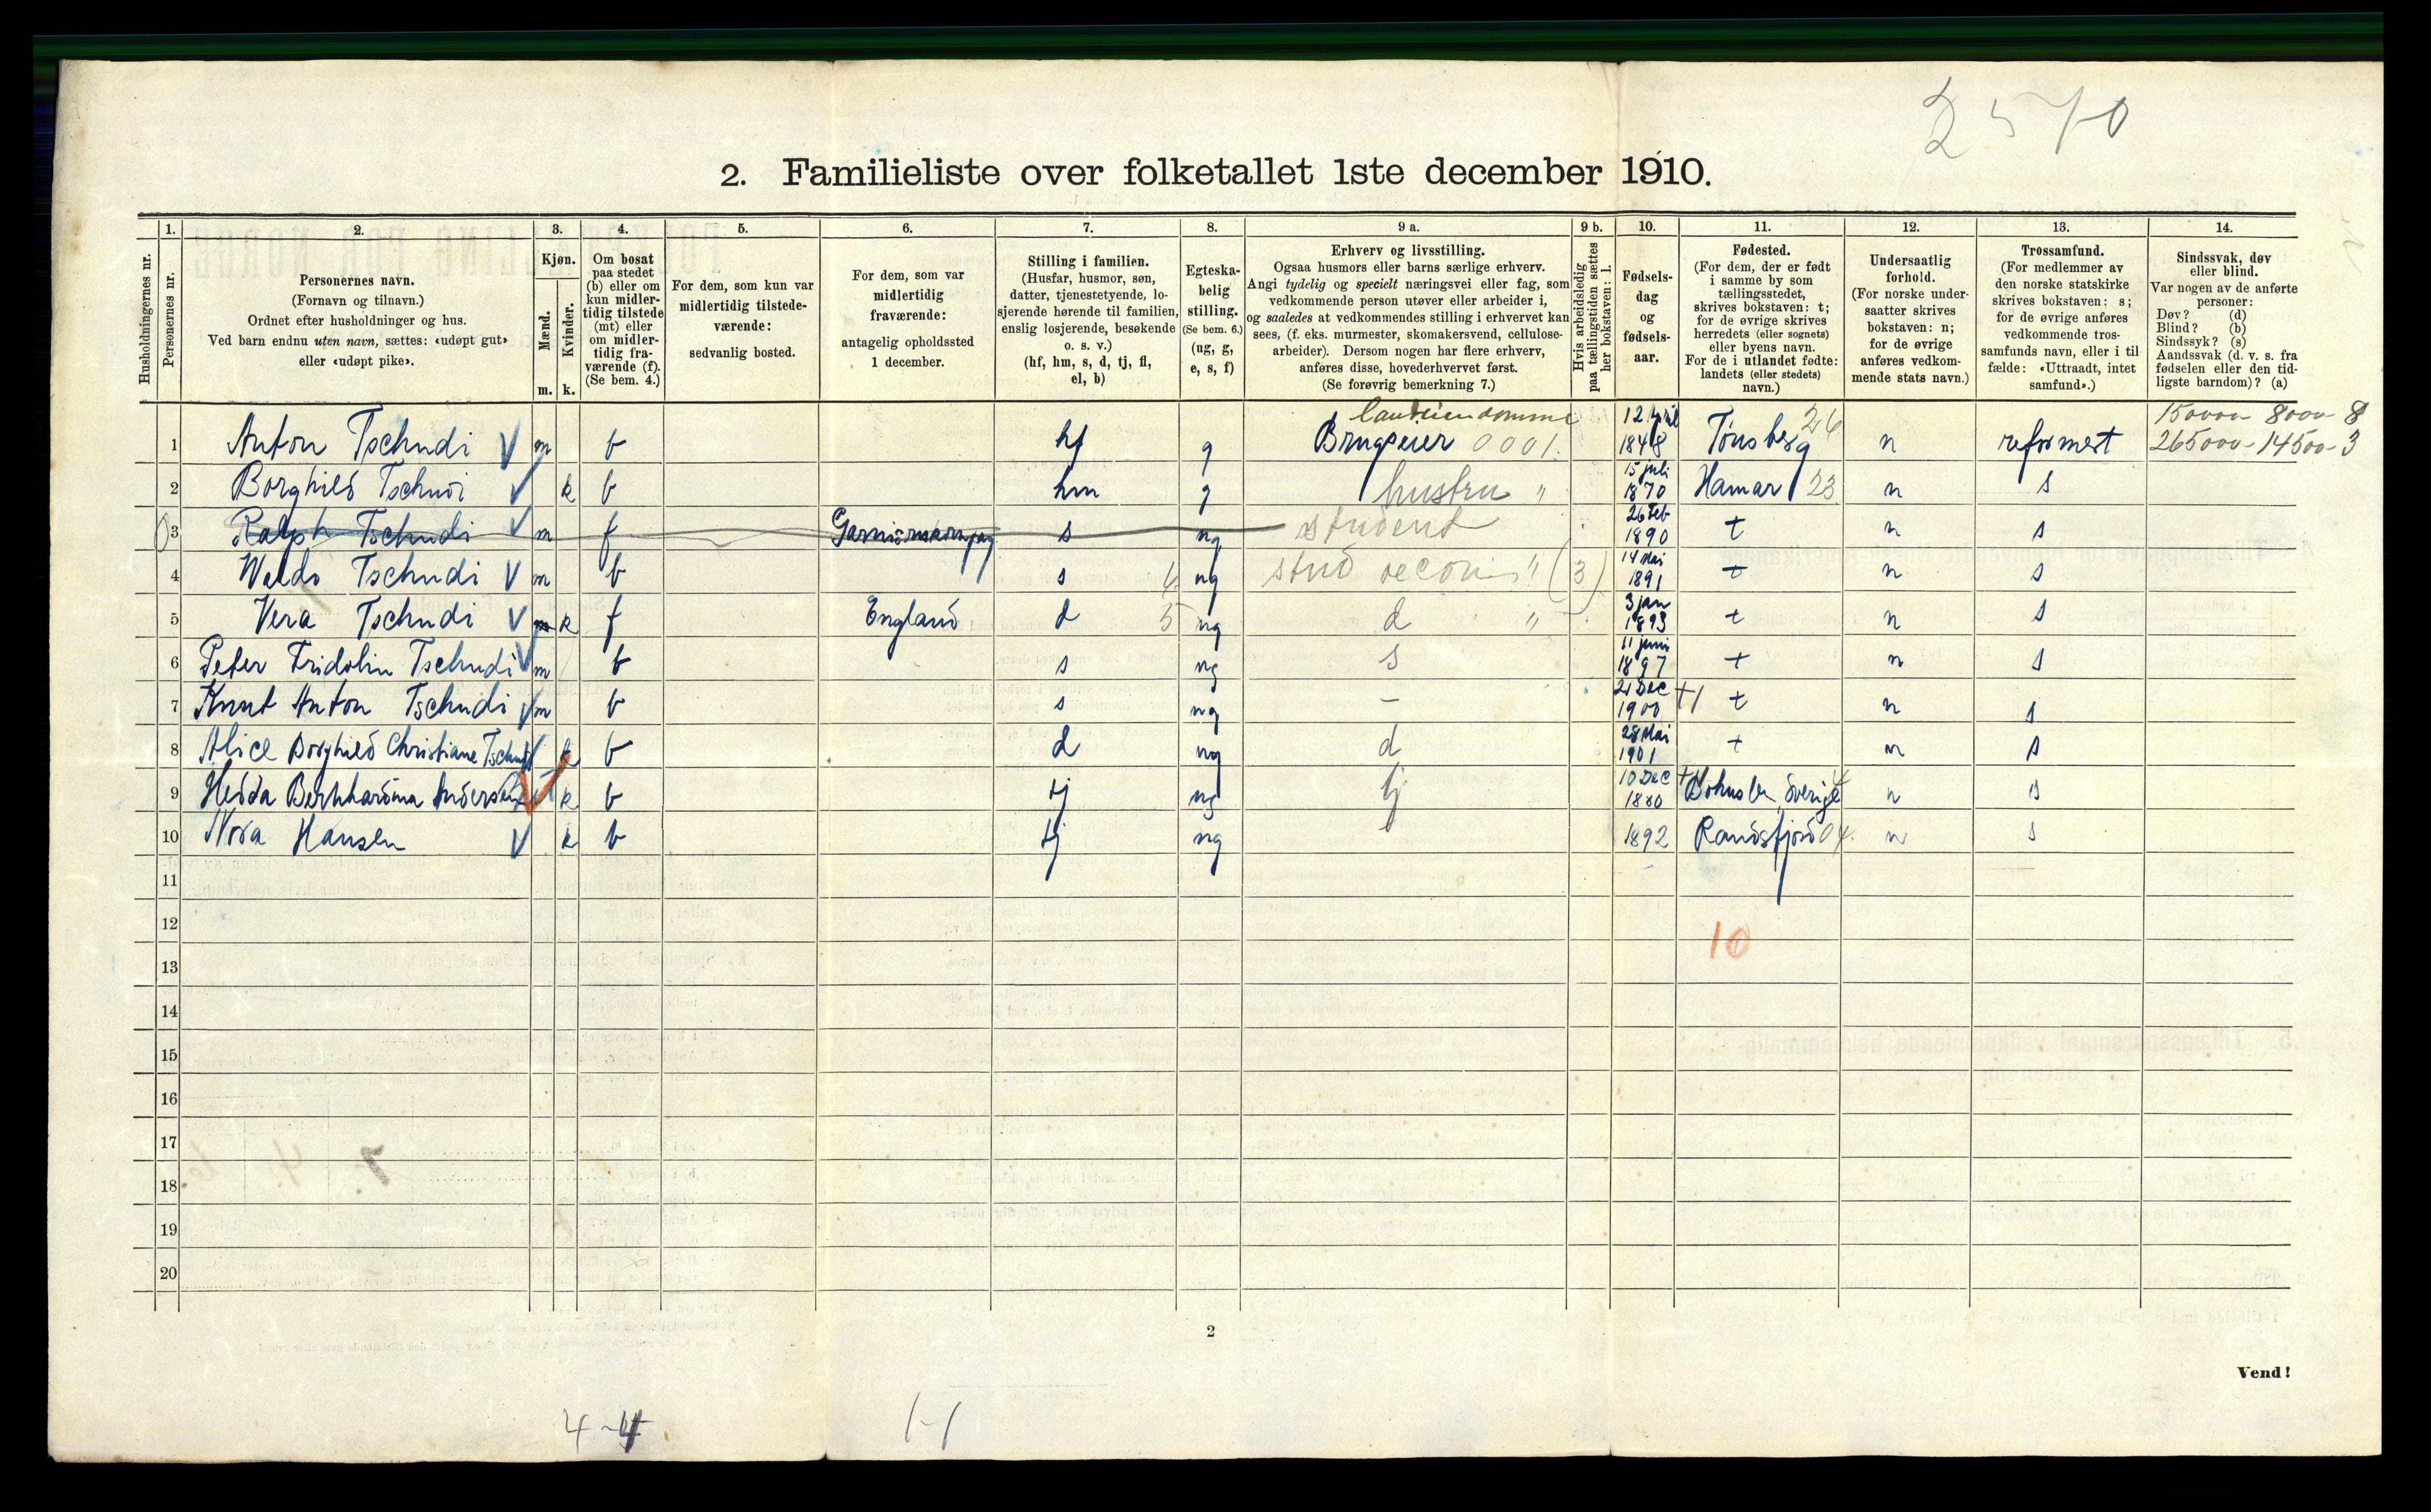 2570
2. Familieliste over folketallet 1ste december 1910.
Husholdningernes nr.
1. Personernes nr.
2. Personernes navn.
(Fornavn og tilnavn.)
Ordnet efter husholdninger og hus.
Ved barn endnu uten navn, sættes: «udøpt gut»
eller «udøpt pike».
3. Kjøn.
Mænd. m.
Kvinder. k.
4. Om bosat
paa stedet
(b) eller om
kun midler-
tidig tilstede
(mt) eller
om midler-
tidig fra-
værende (f).
(Se bem. 4.)
5. For dem, som kun var
midlertidig tilstede-
værende:
sedvanlig bosted.
6. For dem, som var
midlertidig
fraværende:
antagelig opholdssted
1 december.
7. Stilling i familien.
(Husfar, husmor, søn,
datter, tjenestetyende, lo-
sjerende hørende til familien,
enslig losjerende, besøkende
o. s. v.)
(hf, hm, s, d, tj, fl,
el, b)
8. Egteska-
belig
stilling.
(Se bem. 6.)
(ug, g,
e, s, f)
9 a. Erhverv og livsstilling.
Ogsaa husmors eller barns særlige erhverv.
Angi tydelig og specielt næringsvei eller fag, som
vedkommende person utøver eller arbeider i,
og saaledes at vedkommendes stilling i erhvervet kan
sees, (f. eks. murmester, skomakersvend, cellulose-
arbeider). Dersom nogen har flere erhverv,
anføres disse, hovederhvervet først.
(Se forøvrig bemerkning 7.)
9 b. Hvis arbeidsledig
paa tællingstiden sættes
her bokstaven: l.
10. Fødsels-
dag
og
fødsels-
aar.
11. Fødested.
(For dem, der er født
i samme by som
tællingsstedet,
skrives bokstaven: t;
for de øvrige skrives
herredets (eller sognets)
eller byens navn.
For de i utlandet fødte:
landets (eller stedets)
navn.)
12. Undersaatlig
forhold.
(For norske under-
saatter skrives
bokstaven: n;
for de øvrige
anføres vedkom-
mende stats navn.)
13. Trossamfund.
(For medlemmer av
den norske statskirke
skrives bokstaven: s;
for de øvrige anføres
vedkommende tros-
samfunds navn, eller i til
fælde: «Uttraadt, intet
samfund».)
14. Sindssvak, døv
eller blind.
Var nogen av de anførte
personer:
Døv? (d)
Blind? (b)
Sindssyk? (s)
Aandssvak (d. v. s. fra
fødselen eller den tid-
ligste barndom)? (a)
1 Anton Tschudi m b hf g Brugseier 0001. 12 april 1848 Tønsberg 26 n reformert 150000 - 8000 - 8
265000 - 14500 - 3
2 Borghild Tschudi k b hm g hustru " 15 juli 1870 Hamar 23 n s
3 Ralph Tschudi m f s ug student 26 Feb 1890 t n s
4 Waldo Tschudi m b s 4 ug stud oecon " (3) 14 Mai 1891 t n s
5 Vera Tschudi k f England d 5 ug d " 3 jan 1893 t n s
6 Peter Fridolin Tschudi m b s ug s 11 juni 1897 t n s
7 Knut Anton Tschudi m b s ug – 21 Dec 1900 t n s
8 Alice Borghild Christiane Tschudi k b d ug d 28 Mai 1901 t n s
9 Hedda Bernhardina Andersen k b tj ug tj 10 Dec 1880 Bohuslen, Sverige n s
10 Nora Hansen k b tj ug 1892 Randsfjord 04. n s
11
12
10
13
14
15
16
17
18
19
20
2
Vend!
4-4
1-1